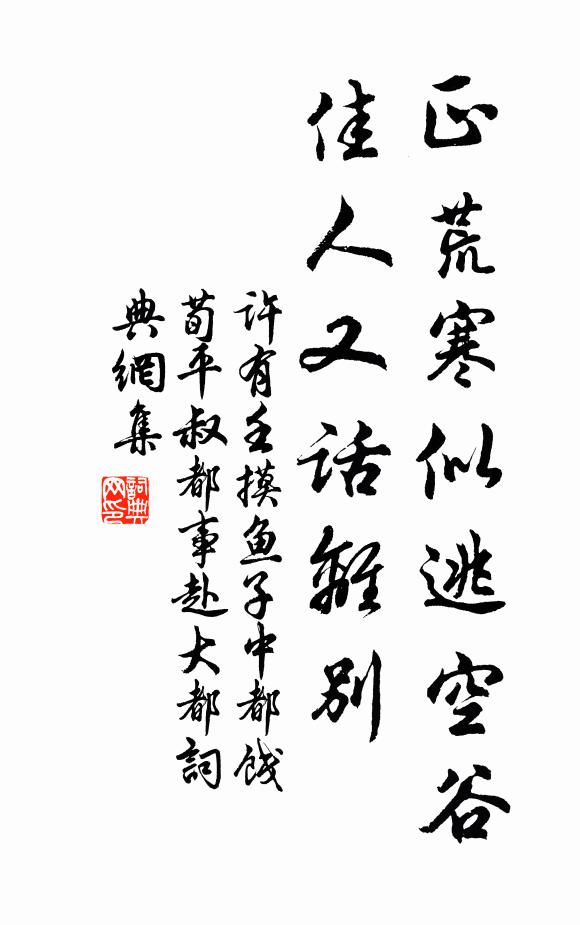 正荒寒似逃空谷
佳人又话離别
许有壬摸鱼子中都饯
荀平叔都事赴大都詞
典網集
詞典网印